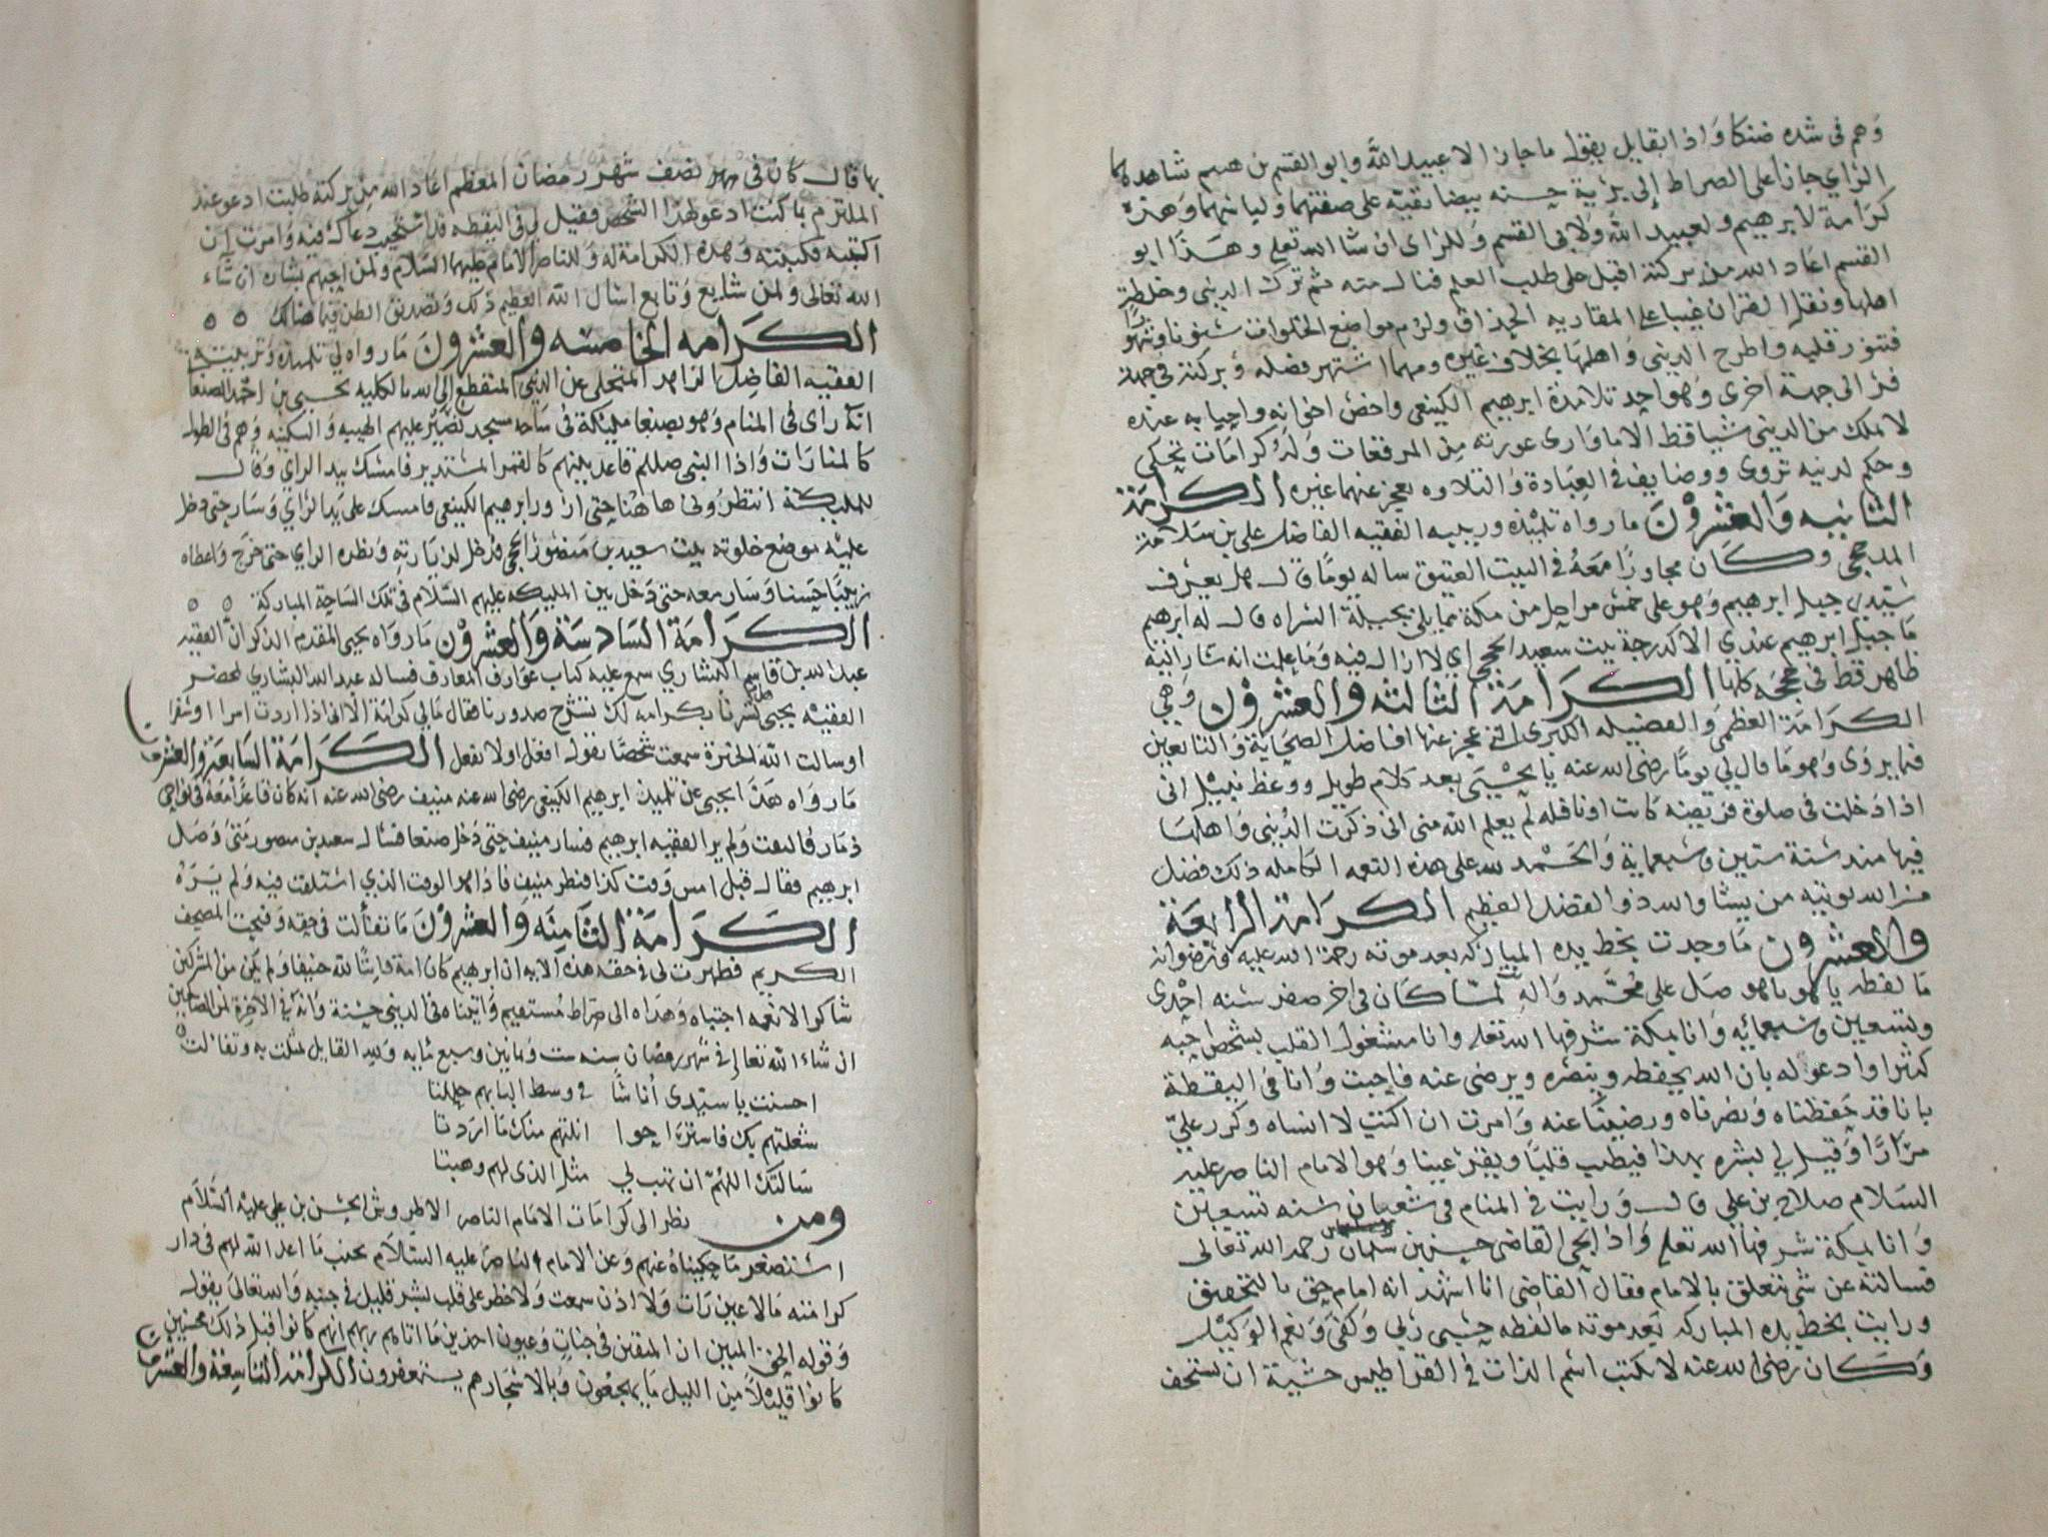 وَهم فى شده ضنكا وَاذا بقايل يقول ما جاز الا عبيد اللهَ وابو القسم بن هيم شاهده كما
الراي جازا على الصراط إلى برّية حسنه بيضا نقيّه على صفتهما ولباسهما وَهذه
كرَامة لابرهيم ولعبيد اللهَ وَلابى القسم وَللراى ان شا الله تعلى وهَذا ابو
القسم اعَاد الله من بركته اقبل على طلب العلم فنال منه ثم ترك الدينى وخلطة
اهلها ونقل القران غيبا على المقاريه الحذاق ولزم مواضع الخلوات
فتنور قلبه واطرح الدينى وَاهلها بخلاف غيره ومهما اشتهر فضله وَبركته في جهة
فر الى جهة اخرى وَهو احد تلامذة ابرهيم الكينعى واخص اخوانه واحبابه عنده
لا ملك من الدينى شيا قط الا ما وَارى عورته مِن المرقعات وَلهُ كرامَات تحكى
وحكم لدنيه تروى ووضايف فى العِبَادة وَالتلاوه يعجز عنهما غيره الكرامَة
الثانيه وَالعشرُوْنَ ما رواه تلميذه وربيبه الفقيه الفاضل على بن سَلامة
المدحجى وكَان مجاورًا معَهُ فى البيت العتيق ساله يومًا قال هل يعرف
سَيّدي جبل ابرهيم وَهو على خمس مراحل من مكة مما يلى بجيلة السراه قال له ابرهيم
مَا جبل ابرهيم عندي الا كدرجة بيت سعيد الحججى اي لا ازال فيه وَما علمت انه سَار اليه
ظاهر قط فى حججه كلها الكرَامَة الثالثه والعشرُوْن وَهي
الكرَامَة العظمى وَالفضيله الكبرى التى عجز عنها افاضل الصحَابة وَالتابعين
فيما يروى وَهو مَا قال لي يومًا رضى الله عنه يا يحيى بعد كلام طويل ووعظ نبيل انى
اذا دَخلت فى صلوة فريضه كانت او نافله لم يعلم الله منى انى ذكرت الدينى وَاهلها
فيها منذ سنة ستين وسَبعماية وَالحَمْد لله على هذه النعمه الكامله ذلك فضل
من الله يوتيه من يشا والله ذو الفضل العظيم الكرَامَة الرابعَة
والعشرُون مَا وجدت بخط يده المباركه بعد موته رحمة الله عليه ورضوانه
مَا لفظه يا هو يا هو صَل على محمَّد وَاله لمَّا كَان فى اخر صفر سَنه احْدى
وتسعين وسَبعمائه وَانا بمكة شرفها الله تعلى وانا مشغول القلب بشخص احبه
كثيرا وادعو له بان الله يحفظه وينصره ويرضى عنه فاجبت وَانا فى اليقظة
بانا قد حَفظناه وَنصرناه ورضيْنا عنه وَامرت ان اكتب لا انساه وكرر عليّ
مرَارًا وَقيل لي بشره بهذا فيطيب قلبا ويقر عينا وَهو الامام الناصر عليه
السَلام صَلاح بن علي قال وَرايت فى المنام فى شعبان سَنه تسعين
وَانا بمكة شرفها الله تعلى وَاذا بحي القاضى حسن بن سلمان رحمه الله تعالى
فسالته عن شى يتعلق بالامام فقال القاضى انا اشهد انه امام حق بالتحقيق
ورايت بخط يده المباركه بَعد موته ما لفظه حسبى رَبي وَكفى وَنعم الوَكيْل
وَكَان رضى الله عنه لا يكتب اسْم الذات فى القراطيس خشية ان يستخف
بها قال كانَ فى نصف شهر رمضان المعظم اعَاد الله من بركته طلبت ادعو عند
الملتزم بما كنت ادعو لهذا الشخص فقيل لي فى اليقظه قد استجيب دعاك فيه وَامرت ان
اكتبه فكتبته وَهذه الكرَامة له وَللناصر الامام عليهما السَلام وَلمن احبهم بشاره ان شَاء
الله تعالى وَلمن شايع وَتابع اسَال الله العظيم ذلك وَتصديق الظن فيما هنالك
الكرَامه الخامسه والعشرُونَ مَا رواه لي تلميذه وَتربيته
الفقيه الفاضل الزاهد المتخلى عن الدينى المنقطع إلى الله بالكليه يحيى بن احمَد الصنعا
انهُ راى فى المنام وَهو بصنعا مليكة فى سَاحه مسجد نصَيْر عليهم الهيبه وَالسكينه وَهم فى الطول
كالمنارَات وَاذا النبى صلعم قاعد بينهم كالقمر المستدير فامسك بيد الراي وقال
للمليكة انتظرُونى هَا هُنا حتى ازور ابرهيم الكينعى فامسك على يَد الراي وَسَار حتى دخل
عليْه موضع خلوته بيت سعيد بن مَنصُور الحججى فدخل لزيَارته وَنظره الراي حتى خرَج وَاعطاه
زبيبًا حَسنا وَسَار معه حتى دَخل بين المليكه عليهم السَّلام فى تلك السَاحة المباركة
الكرَامَة السَادسَة وَالعشرُوْن مَا روَاه يحيى المقدم الذكر انّ الفقيه
عبد الله بن قاسِم البشاري سمع عليه كتاب عوَارف المعارف فساله عبد الله البشاري بمحضر
الفقيْه يحيى بشرنا بكرامه لك تنشرح صدورنا فقال مَا لي كرامَة الا انى اذا اردت امرا او سَفرا
اوسالت اللهَ الخيْرَة سمعت شخصًا يقول افعل او لا تفعل الكَرَامَة السَابعَة وَالعشرون
مَا روَاه هَذا يحيى عن تلميذ ابرهيم الكينعى رضى الله عنه منيف رضى الله عنه انه كان قاعدًا معَهُ فى نواحي
ذمَار فالتفت وَلم ير الفقيه ابرهيم فسار منيف حتى دخل صنعا فسَال سعيد بن منصور مَتى وَصَل
ابرهيم فقال قبل امس وقت كذا فنظر منيف فاذا هو الوقت الذي استلفت فيه وَلم يَرَهُ
الكَرَامَة الثَامِنَه وَالعشرُوْنَ مَا تفألت فى حقه وَفتحت المصحف
الكريم فظهرت لي فى حقه هذه الايه ان ابرهيم كان امة قانتا لله حنيفا وَلم يكن من المشركين
شاكرا لانعمه اجتباه وَهدَاه الى صرَاط مُستقيم وَاتيناه فى الدينى حسَنة وَانهُ فى الاخِرة لمن الصَّالحين
ان شاء الله تعالى فى شهر رمضان سَنه ست وَثمانين وسبع مائه وَلله القايل تمثلت به وتفاءلت
احسنت يا سيّدى أناسًا فى وسط البابهم حللتا
شغلتهم بك فاستراحوا انلتهم منك مَا ارَدتا
سَالتك اللهُمّ ان تهب لي مثل الذى لهم وهبتا
ومن نظر الى كرَامَات الامَام الناصر الاطروش الحسن بن علي عليْه السَّلاَم
استصغر مَا حكيناهُ عنهم وَعن الامام الناصر عليه السَّلاَم بجنب مَا اعد الله لهم فى دار
كرامته مَا لا عين رَات وَلا اذن سمعت وَلا خطر على قلب بشر قليل في جنبه وَالله تعالى يقول
وَقوله الحق المبين ان المتقين فى جنات وَعيون اخذين مَا اتاهم ربهم انهم كانوا قبل ذلك محسنين
كانوا قليْلاً مّن الليل مَا يهجعُون وَبالاسحَارهم يستغفرون الكرَامَة التاسعَة والعشرون